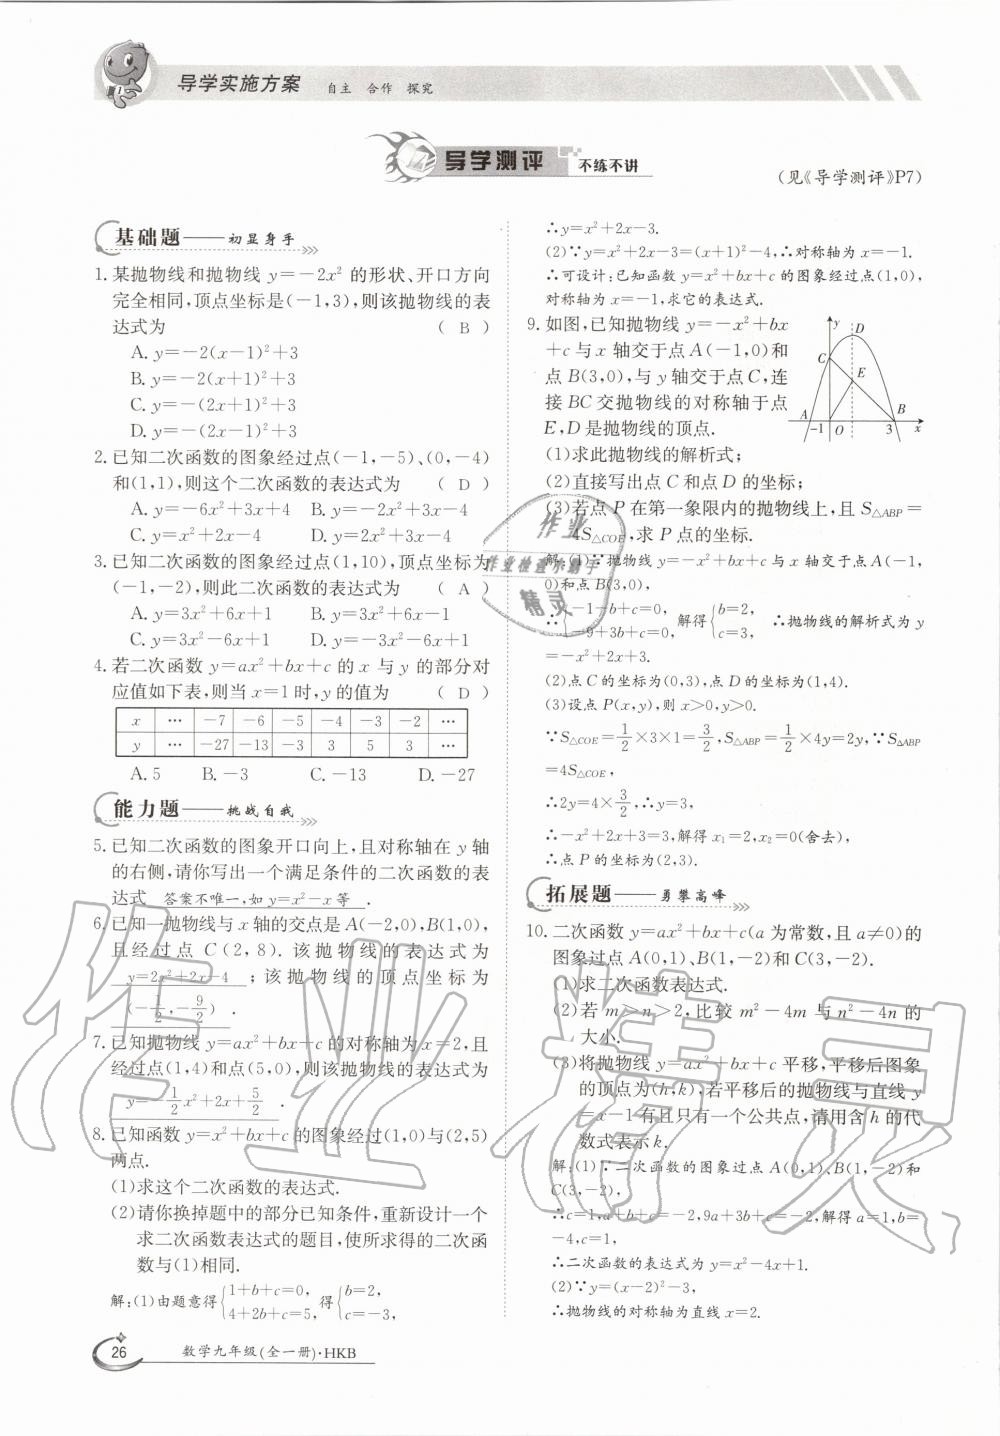 导学实施方案 自主 合作 探究
导学测评 不练不讲
(见《导学测评》P7)
基础题——初显身手
1. 某抛物线和抛物线 y=-2x² 的形状、开口方向
完全相同,顶点坐标是(-1,3),则该抛物线的表
达式为 ( B )
A. y=-2(x-1)²+3
B. y=-2(x+1)²+3
C. y=-(2x+1)²+3
D. y=-(2x-1)²+3
2. 已知二次函数的图象经过点(-1,-5)、(0,-4)
和(1,1),则这个二次函数的表达式为 ( D )
A. y=-6x²+3x+4 B. y=-2x²+3x-4
C. y=x²+2x-4 D. y=2x²+3x-4
3. 已知二次函数的图象经过点(1,10),顶点坐标为
(-1,-2),则此二次函数的表达式为 ( A )
A. y=3x²+6x+1 B. y=3x²+6x-1
C. y=3x²-6x+1 D. y=-3x²-6x+1
4. 若二次函数 y=ax²+bx+c 的 x 与 y 的部分对
应值如下表,则当 x=1 时,y 的值为 ( D )
x … -7 -6 -5 -4 -3 -2 …
y … -27 -13 -3 3 5 3 …
A. 5 B. -3 C. -13 D. -27
能力题——挑战自我
5. 已知二次函数的图象开口向上,且对称轴在 y 轴
的右侧,请你写出一个满足条件的二次函数的表
达式 答案不唯一,如 y=x²-x 等 .
6. 已知一抛物线与 x 轴的交点是 A(-2,0),B(1,0),
且经过点 C(2,8). 该抛物线的表达式为
y=2x²+2x-4 ;该抛物线的顶点坐标为
(-1/2,-9/2) .
7. 已知抛物线 y=ax²+bx+c 的对称轴为 x=2,且
经过点(1,4)和点(5,0),则该抛物线的表达式为
y=-1/2x²+2x+5/2 .
8. 已知函数 y=x²+bx+c 的图象经过(1,0)与(2,5)
两点.
(1)求这个二次函数的表达式.
(2)请你换掉题中的部分已知条件,重新设计一个
求二次函数表达式的题目,使所求得的二次函
数与(1)相同.
解:(1)由题意得{1+b+c=0, 4+2b+c=5, 得{b=2, c=-3,
∴y=x²+2x-3.
(2)∵y=x²+2x-3=(x+1)²-4,∴对称轴为 x=-1.
∴可设计:已知函数 y=x²+bx+c 的图象经过点(1,0),
对称轴为 x=-1,求它的表达式.
9. 如图,已知抛物线 y=-x²+bx
+c 与 x 轴交于点 A(-1,0)和
点 B(3,0),与 y 轴交于点 C,连
接 BC 交抛物线的对称轴于点
E,D 是抛物线的顶点.
y D C E A B -1 O 3 x
(1)求此抛物线的解析式;
(2)直接写出点 C 和点 D 的坐标;
(3)若点 P 在第一象限内的抛物线上,且 S△ABP=
4S△COE,求 P 点的坐标.
解:(1)∵抛物线 y=-x²+bx+c 与 x 轴交于点 A(-1,
0)和点 B(3,0),
∴{-1-b+c=0, -9+3b+c=0, 解得{b=2, c=3, ∴抛物线的解析式为 y
=-x²+2x+3.
(2)点 C 的坐标为(0,3),点 D 的坐标为(1,4).
(3)设点 P(x,y),则 x>0,y>0.
∵S△COE=1/2×3×1=3/2,S△ABP=1/2×4y=2y,∵S△ABP
=4S△COE,
∴2y=4×3/2,∴y=3,
∴-x²+2x+3=3,解得 x₁=2,x₂=0(舍去),
∴点 P 的坐标为(2,3).
拓展题——勇攀高峰
10. 二次函数 y=ax²+bx+c(a 为常数,且 a≠0)的
图象过点 A(0,1)、B(1,-2)和 C(3,-2).
(1)求二次函数表达式.
(2)若 m>n>2,比较 m²-4m 与 n²-4n 的
大小.
(3)将抛物线 y=ax²+bx+c 平移,平移后图象
的顶点为(h,k),若平移后的抛物线与直线 y
=x-1 有且只有一个公共点,请用含 h 的代
数式表示 k.
解:(1)∵二次函数的图象过点 A(0,1)、B(1,-2)和
C(3,-2),
∴c=1,a+b+c=-2,9a+3b+c=-2,解得 a=1,b=
-4,c=1,
∴二次函数的表达式为 y=x²-4x+1.
(2)∵y=(x-2)²-3,
∴抛物线的对称轴为直线 x=2.
26 数学九年级(全一册)·HKB
作业
作业检查小助手
精灵
作业精灵